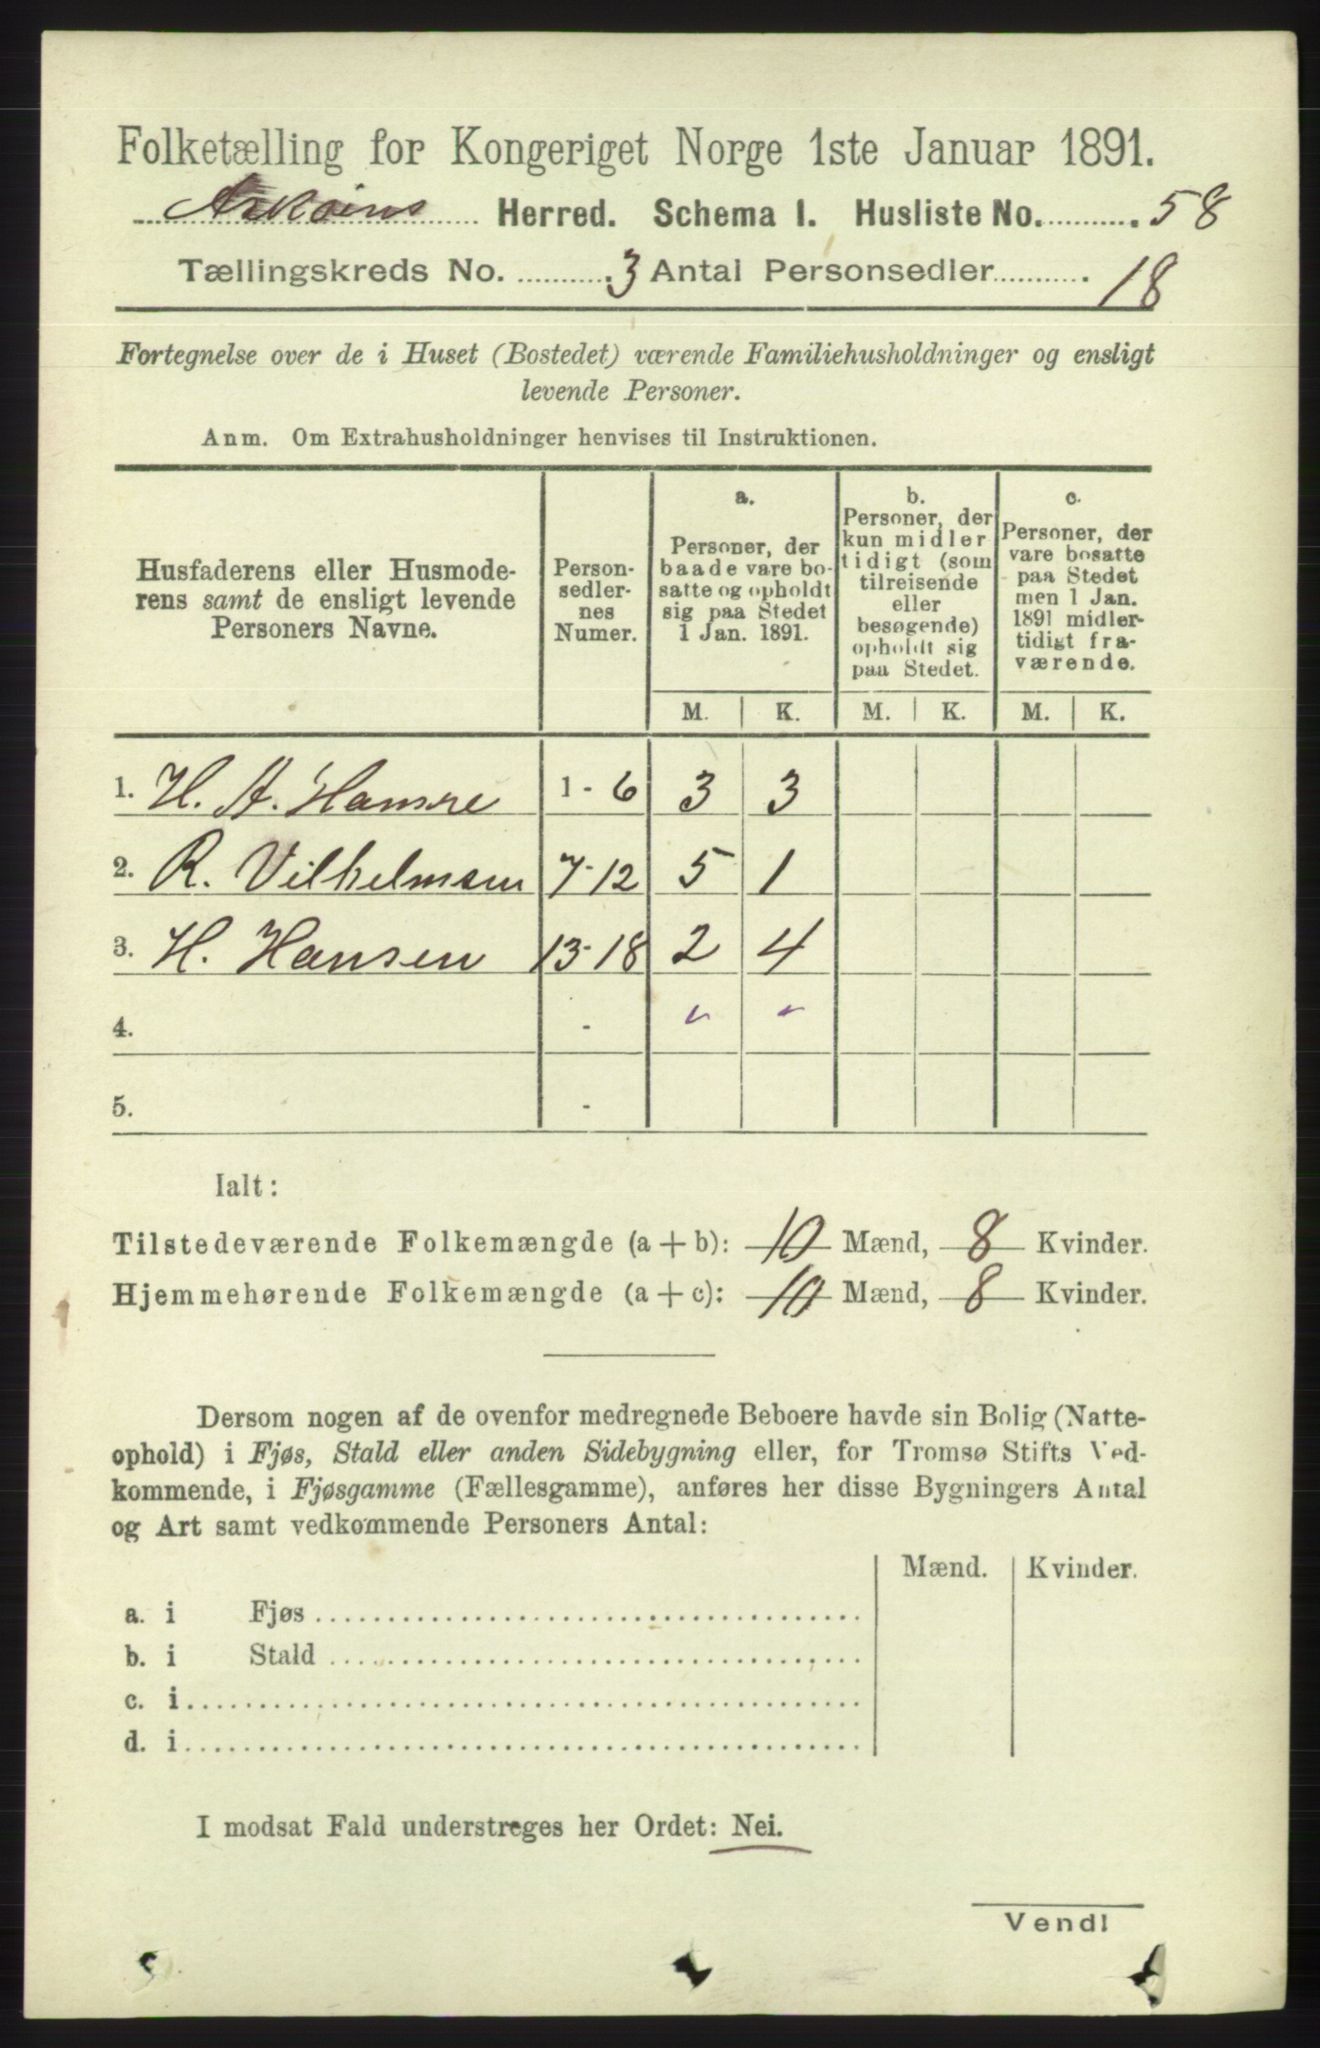 Folketælling for Kongeriget Norge 1ste Januar 1891.
Askøens Herred. Schema I. Husliste No. 58
Tællingskreds No. 3 Antal Personsedler 18
Fortegnelse over de i Huset (Bostedet) værende Familiehusholdninger og ensligt
levende Personer.
Anm. Om Extrahusholdninger henvises til Instruktionen.
Husfaderens eller Husmode-
rens samt de ensligt levende
Personers Navne.
Person-
sedler-
nes
Numer.
a.
Personer, der
baade vare bo-
satte og opholdt
sig paa Stedet
1 Jan. 1891.
b.
Personer, der
kun midler
tidigt (som
tilreisende
eller
besøgende)
opholdt sig
paa Stedet.
c.
Personer, der
vare bosatte
paa Stedet
men 1 Jan.
1891 midler-
tidigt fra-
værende.
M. K. M. K. M. K.
1. H. A. Hansne 1 - 6 3 3
2. R. Vilhelmsen 7-12 5 1
3. H. Hansen 13-18 2 4
4. -
5. -
Ialt:
Tilstedeværende Folkemængde (a + b): 10 Mænd, 8 Kvinder.
Hjemmehørende Folkemængde (a + c): 10 Mænd, 8 Kvinder.
Dersom nogen af de ovenfor medregnede Beboere havde sin Bolig (Natte-
ophold) i Fjøs, Stald eller anden Sidebygning eller, for Tromsø Stifts Ved-
kommende, i Fjøsgamme (Fællesgamme), anføres her disse Bygningers Antal
og Art samt vedkommende Personers Antal:
Mænd. Kvinder.
a. i Fjøs
b. i Stald
c. i
d. i
I modsat Fald understreges her Ordet: Nei.
Vend!